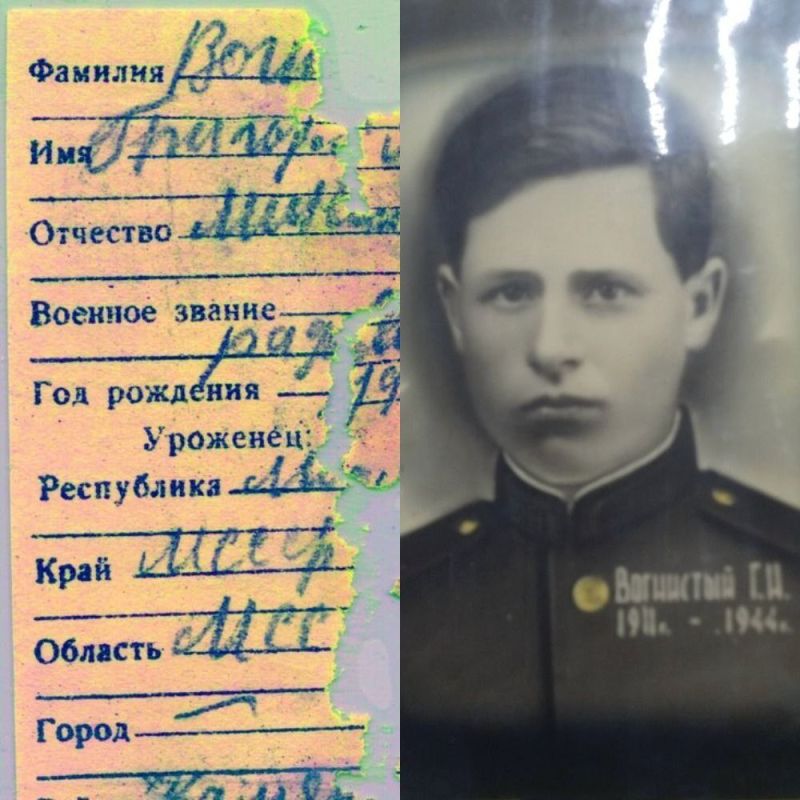 Фамилия Воги
Имя Григори
Отчество
Военное звание
ряд
Год рождения 19
Уроженец:
Республика
Край МССР
Область МСС
Город —
Вогнистый Г.И.
1911г. - 1944г.